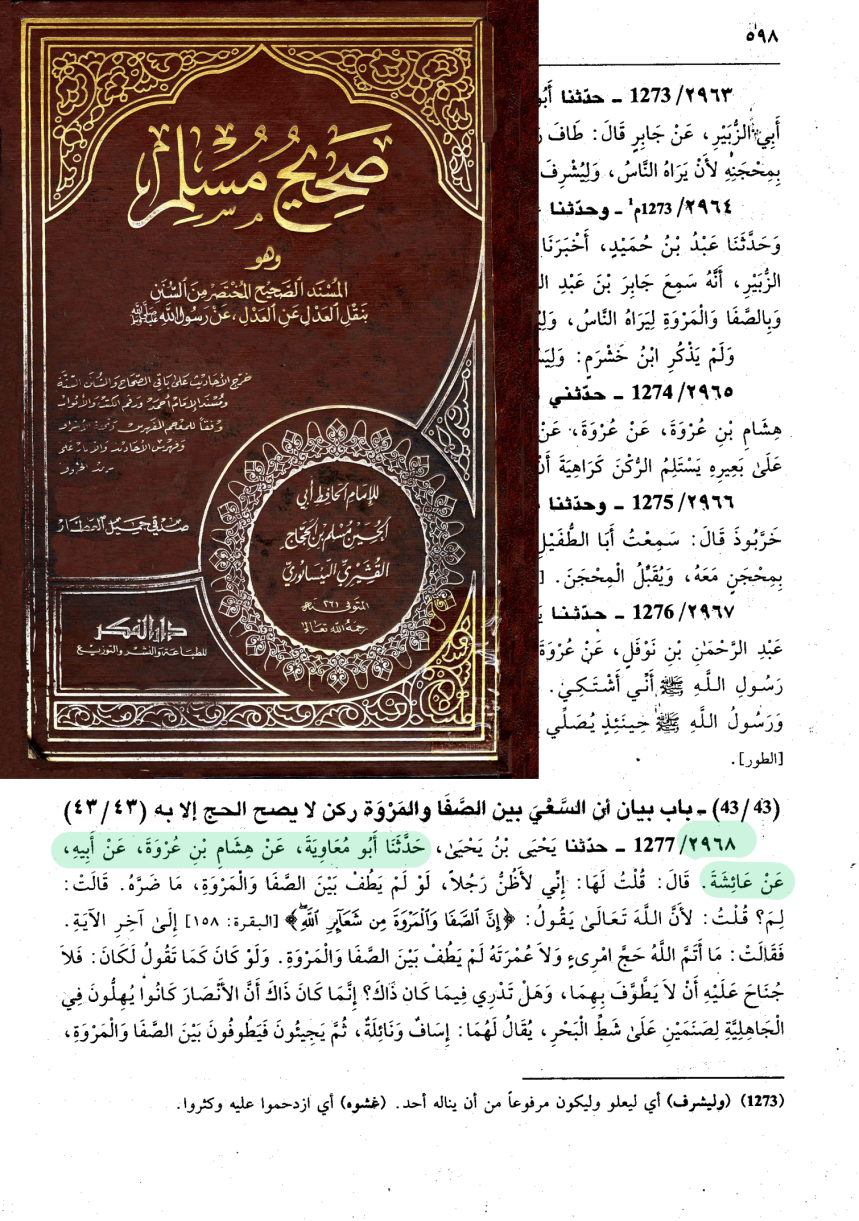 صحيح مسلم
وهو
المسند الصحيح المختصر من السنن
بنقل العدل عن العدل، عن رسول الله ﷺ
خرج الأحاديث على باقي الصحاح والسنن الستة
ومسند الإمام أحمد ورقم الكتب والأبواب
وفقاً للمعجم المفهرس
صدقي جميل العطار
للإمام الحافظ أبي
الحسين مسلم بن الحجاج
القشيري النيسابوري
المتوفى ٢٦١ هـ
رحمه الله تعالى
دار الفكر
للطباعة والنشر والتوزيع
٥٩٨
٢٩٦٣/ 1273 ـ حدّثنا
أَبِي الزُّبَيْرِ، عَنْ جَابِرٍ قَالَ: طَافَ
بِمِحْجَنِهِ لأَنْ يَرَاهُ النَّاسُ، وَلِيُشْرِفَ
٢٩٦٤/ 1273م¹ ـ وحدّثنا
وَحَدَّثَنَا عَبْدُ بْنُ حُمَيْدٍ، أَخْبَرَنَا
الزُّبَيْرِ، أَنَّهُ سَمِعَ جَابِرَ بْنَ عَبْدِ
وَبِالصَّفَا وَالْمَرْوَةِ لِيَرَاهُ النَّاسُ،
وَلَمْ يَذْكُرِ ابْنُ خَشْرَمٍ:
٢٩٦٥/ 1274 ـ حدّثني
هِشَامِ بْنِ عُرْوَةَ، عَنْ عُرْوَةَ، عَنْ
عَلَىٰ بَعِيرِهِ يَسْتَلِمُ الرُّكْنَ كَرَاهِيَةَ
٢٩٦٦/ 1275 ـ وحدّثنا
خَرَّبُوذَ قَالَ: سَمِعْتُ أَبَا الطُّفَيْلِ
بِمِحْجَنٍ مَعَهُ، وَيُقَبِّلُ الْمِحْجَنَ.
٢٩٦٧/ 1276 ـ حدّثنا
عَبْدِ الرَّحْمٰنِ بْنِ نَوْفَلٍ، عَنْ عُرْوَةَ
رَسُولِ اللَّهِ ﷺ أَنِّي أَشْتَكِي.
وَرَسُولُ اللَّهِ ﷺ حِينَئِذٍ يُصَلِّي
[الطور].
(43/43) ـ باب بيان أن السَّعْيَ بين الصَّفَا والمَرْوَة ركن لا يصح الحج إلا به (٤٣/٤٣)
٢٩٦٨/ 1277 ـ حدّثنا يَحْيَى بْنُ يَحْيَىٰ، حَدَّثَنَا أَبُو مُعَاوِيَةَ، عَنْ هِشَامِ بْنِ عُرْوَةَ، عَنْ أَبِيهِ،
عَنْ عَائِشَةَ. قَالَ: قُلْتُ لَهَا: إِنِّي لأَظُنُّ رَجُلاً، لَوْ لَمْ يَطُفْ بَيْنَ الصَّفَا وَالْمَرْوَةِ، مَا ضَرَّهُ. قَالَتْ:
لِمَ؟ قُلْتُ: لأَنَّ اللَّهَ تَعَالَىٰ يَقُولُ: ﴿إِنَّ الصَّفَا وَالْمَرْوَةَ مِن شَعَائِرِ اللَّهِ﴾ [البقرة: ١٥٨] إِلَىٰ آخِرِ الآيَةِ.
فَقَالَتْ: مَا أَتَمَّ اللَّهُ حَجَّ امْرِىءٍ وَلاَ عُمْرَتَهُ لَمْ يَطُفْ بَيْنَ الصَّفَا وَالْمَرْوَةِ. وَلَوْ كَانَ كَمَا تَقُولُ لَكَانَ: فَلاَ
جُنَاحَ عَلَيْهِ أَنْ لاَ يَطَّوَّفَ بِهِمَا، وَهَلْ تَدْرِي فِيمَا كَانَ ذَاكَ؟ إِنَّمَا كَانَ ذَاكَ أَنَّ الأَنْصَارَ كَانُوا يُهِلُّونَ فِي
الْجَاهِلِيَّةِ لِصَنَمَيْنِ عَلَىٰ شَطِّ الْبَحْرِ، يُقَالُ لَهُمَا: إِسَافٌ وَنَائِلَةٌ، ثُمَّ يَجِيئُونَ فَيَطُوفُونَ بَيْنَ الصَّفَا وَالْمَرْوَةِ،
(1273) (وليشرف) أي ليعلو وليكون مرفوعاً من أن يناله أحد. (غشوه) أي ازدحموا عليه وكثروا.